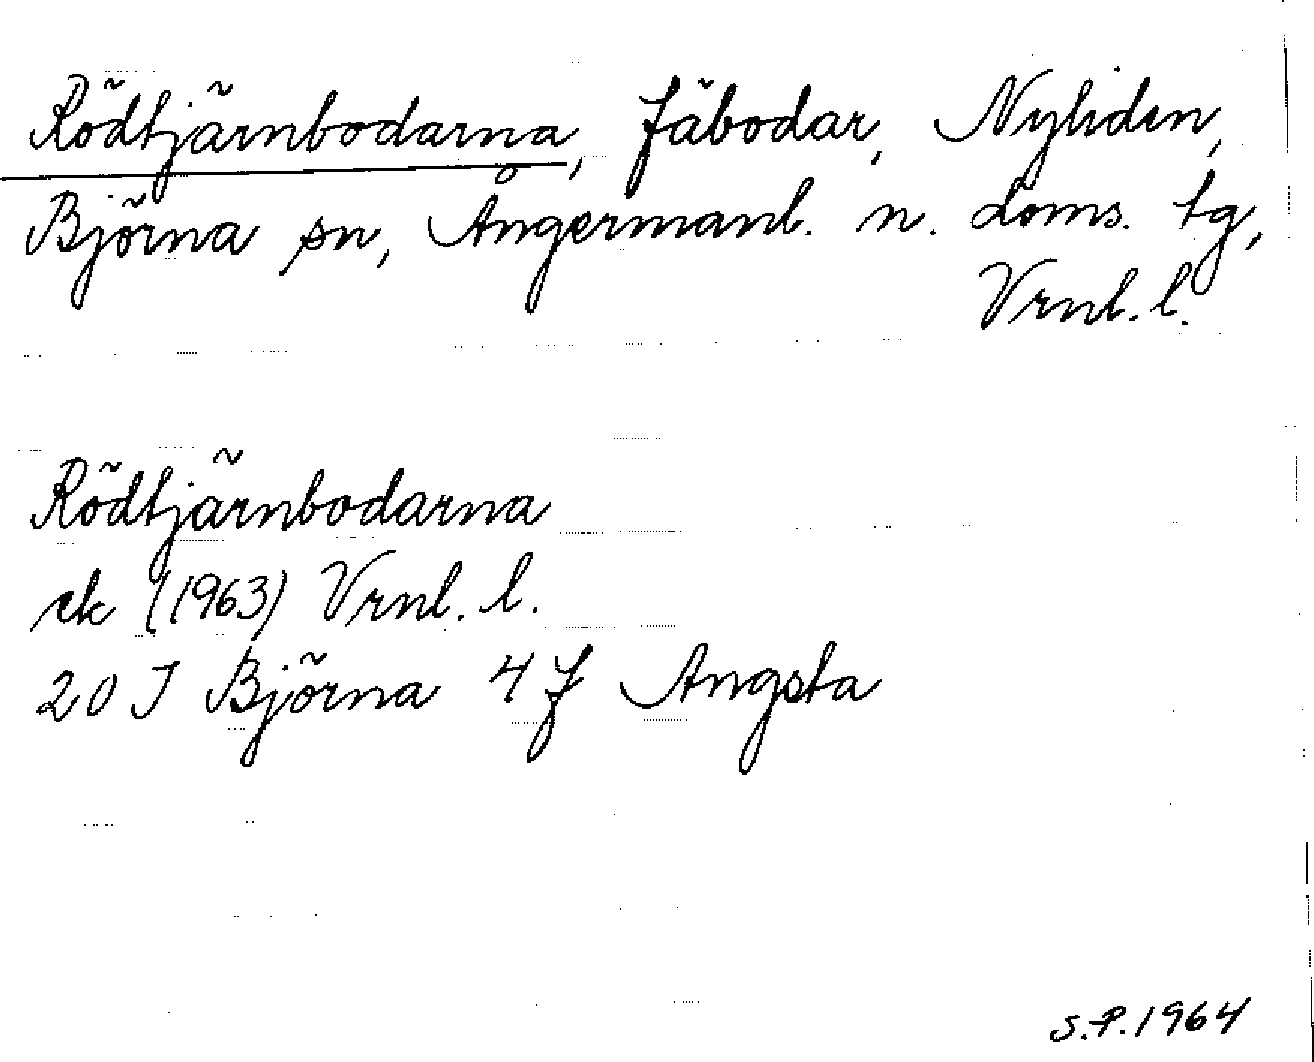 Rödtjärnbodarna, fäbodar, Nyliden,
Björna sn, Ångermanl. n. doms. tg,
Vrnl. l.
Rödtjärnbodarna
ek (1963) Vrnl. l.
20 I Björna 4 f Angsta
S.P. 1964